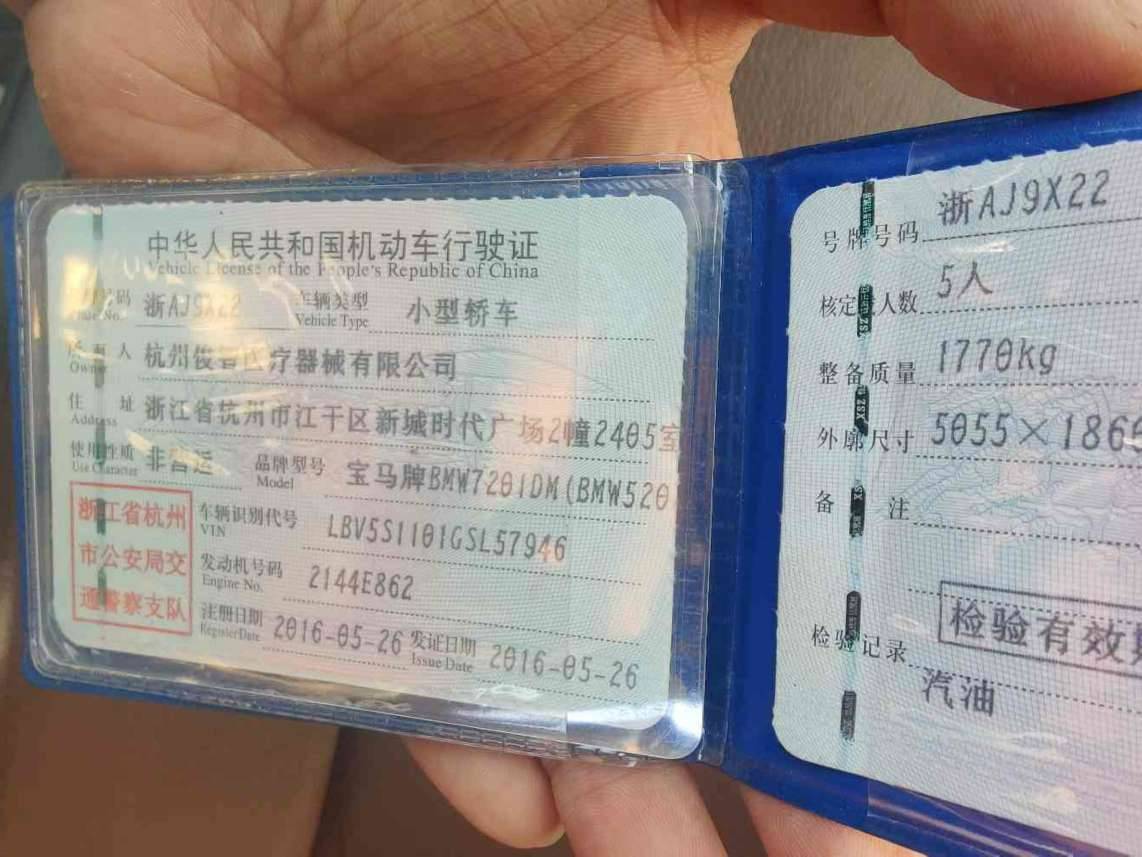 中华人民共和国机动车行驶证
Vehicle License of the People's Republic of China
号码 浙AJ9X22 车辆类型 小型轿车
Plate No. Vehicle Type
所有人 杭州俊 医疗器械有限公司
Owner
住 址 浙江省杭州市江干区新城时代广场2幢2405室
Address
使用性质 非营运 品牌型号 宝马牌BMW7201DM(BMW520
Use Character Model
浙江省杭州
市公安局交
通警察支队
车辆识别代号 LBV5S1101GSL57946
VIN
发动机号码 2144E862
Engine No.
注册日期 2016-05-26 发证日期 2016-05-26
Register Date Issue Date
号牌号码 浙AJ9X22
核定 人数 5人
整备质量 1770kg
外廓尺寸 5055×186
备 注
检验有效
检验记录
汽油